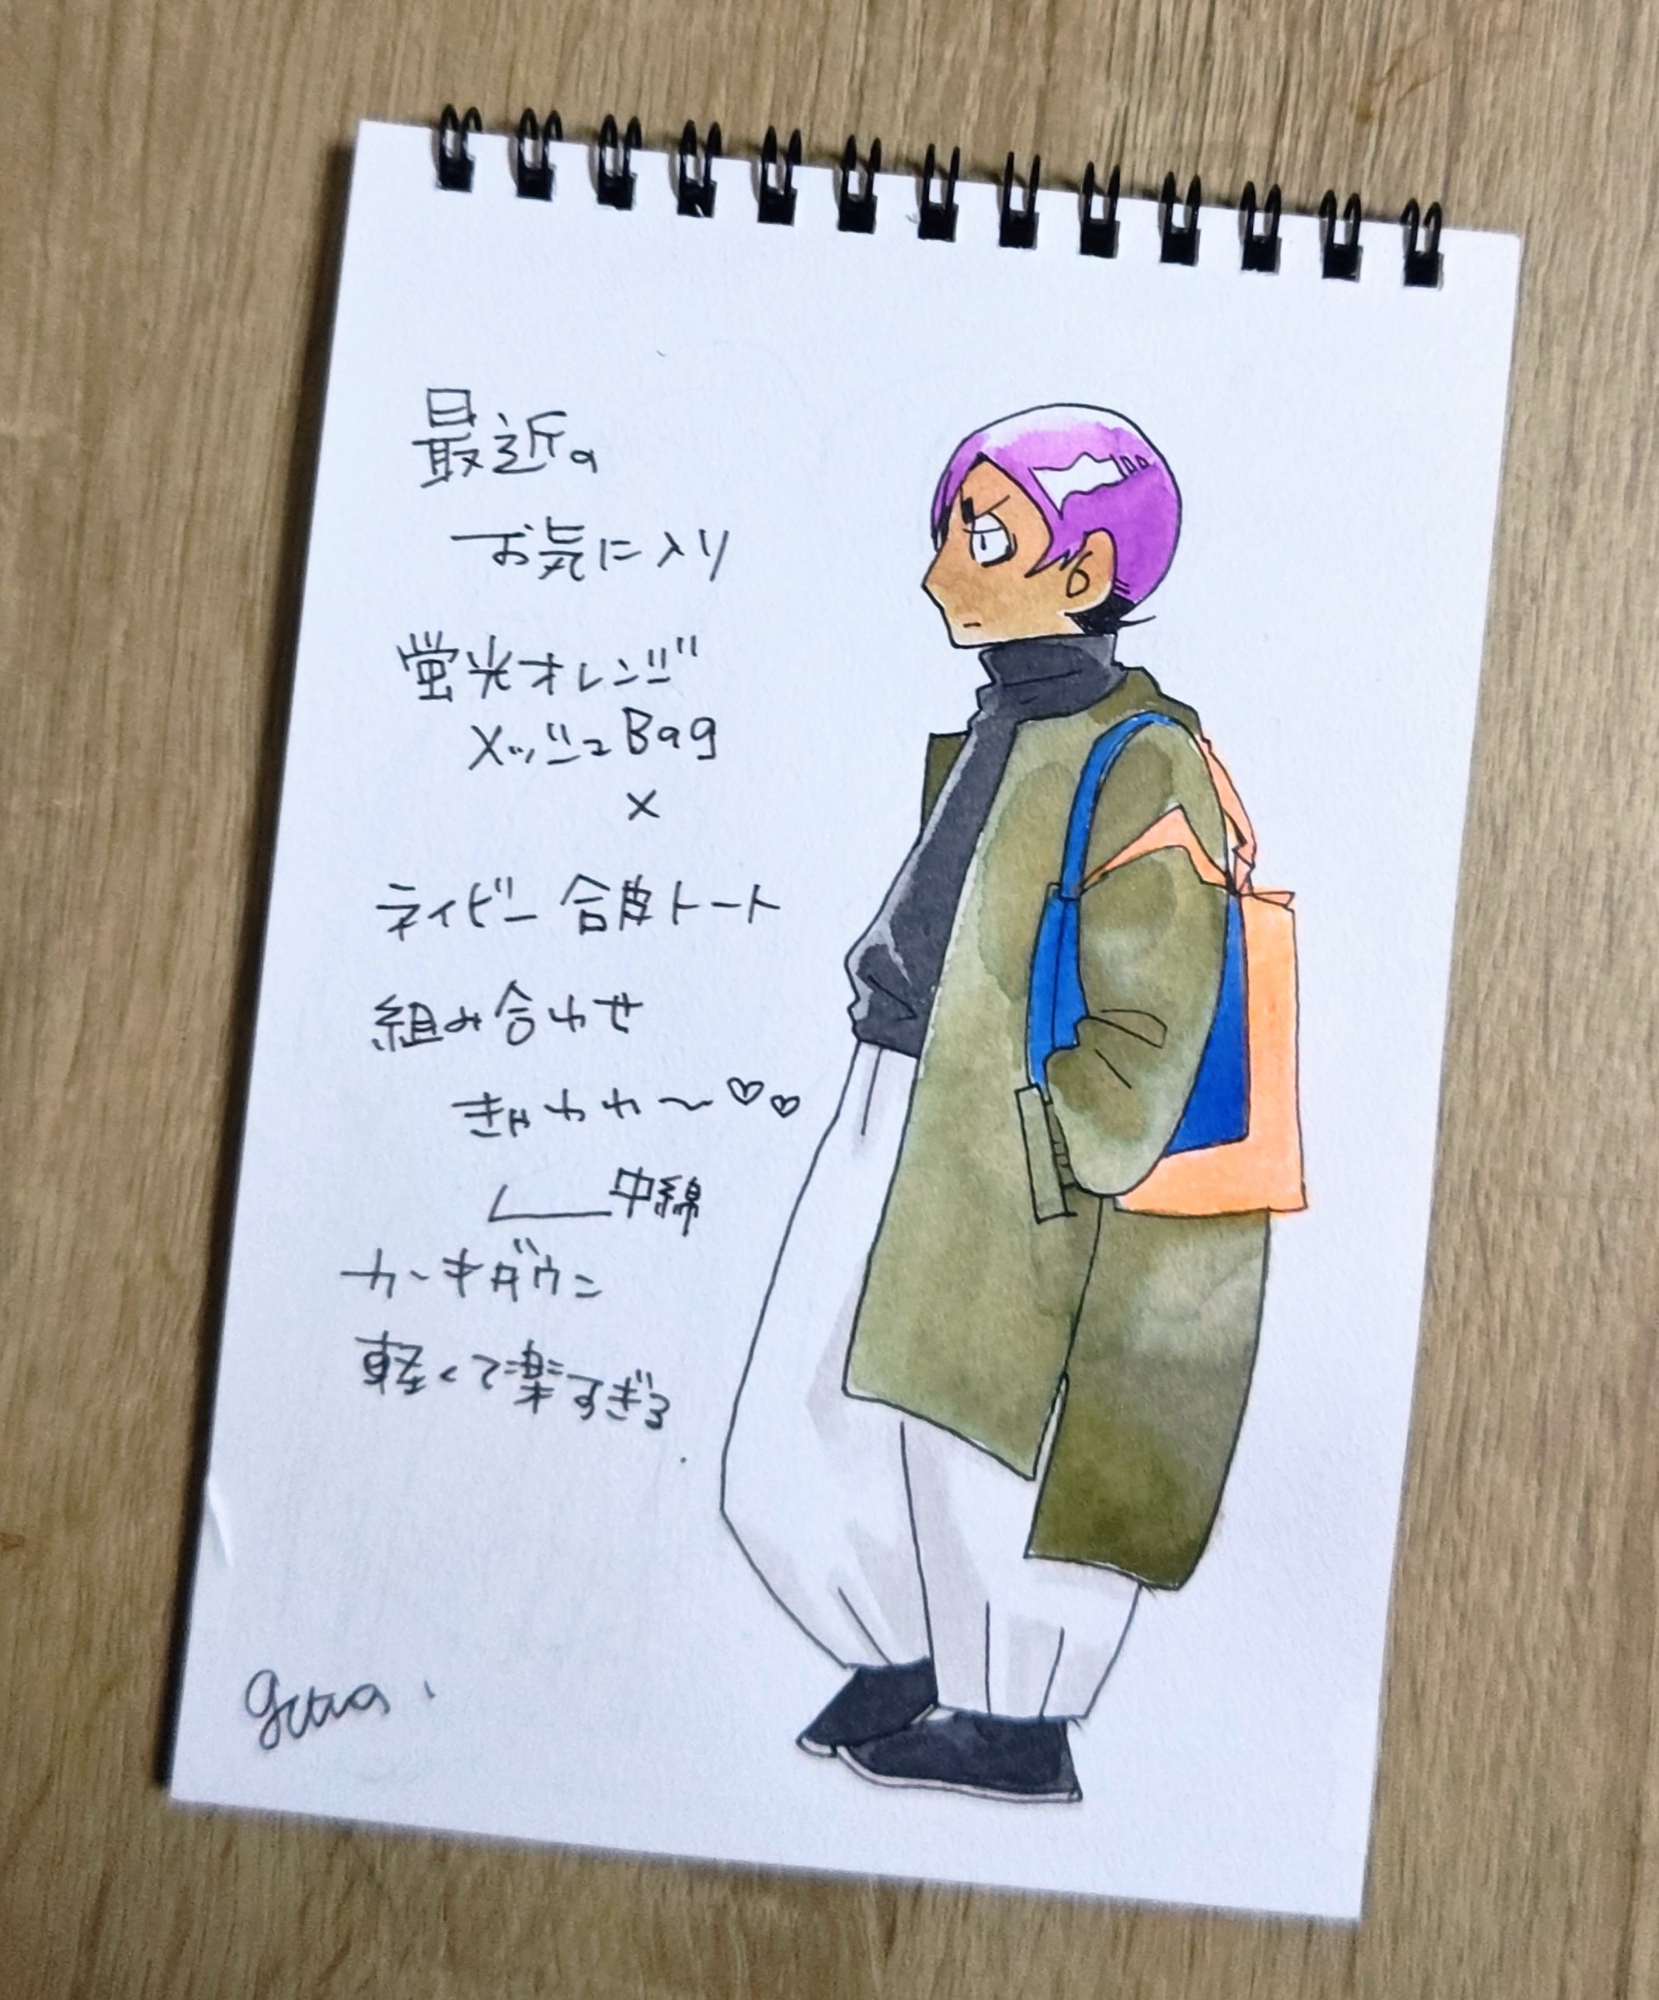 最近の
お気に入り
蛍光オレンジ
メッシュBag
×
ネイビー合皮トート
組み合わせ
きゃわわ〜♡♡
中綿
カーキダウン
軽くて楽すぎる